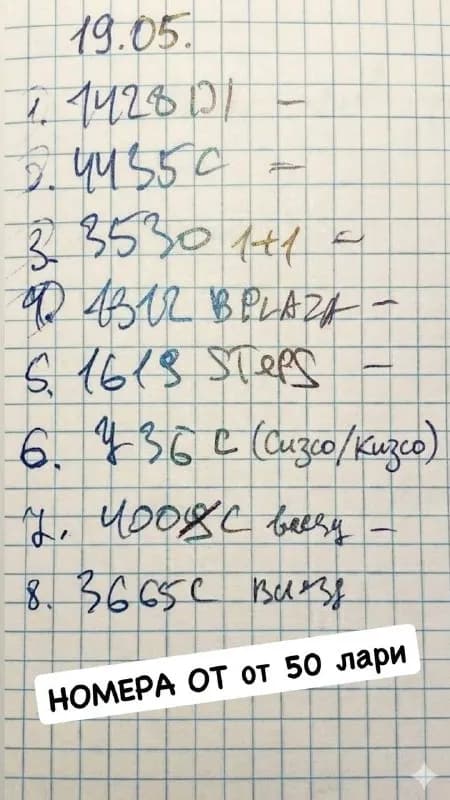 19.05.
1. 1428 D1 -
2. 4435 C -
3. 3530 1+1 -
4. 1312 B PLAZA -
5. 1619 STEPS -
6. 736 C (Сизсо/Кизсо)
7. 4008 C -
8. 3665 C
НОМЕРА ОТ от 50 лари